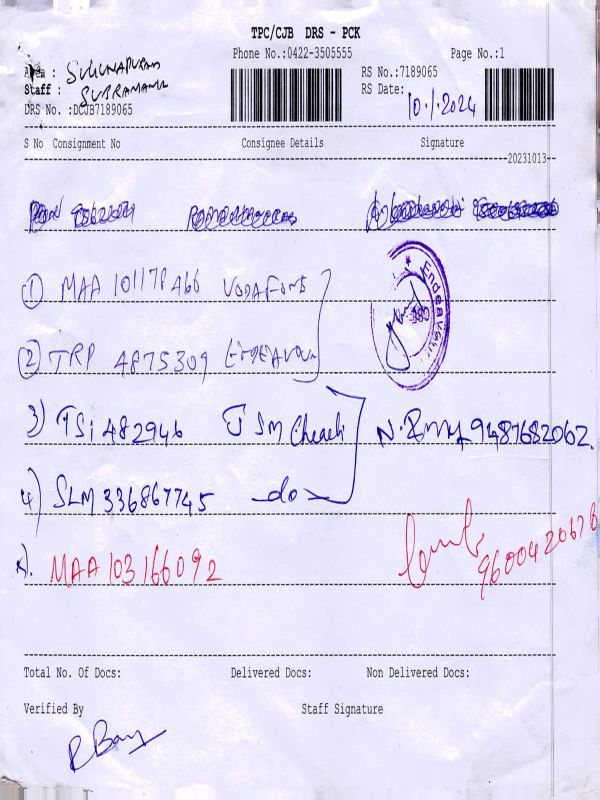 TPC/CJB DRS - PCK
Phone No.:0422-3505555 Page No.:1
Area : SUGUNAPURAM RS No.:7189065
Staff : SUBRAMANI RS Date: 10/1/2024
DRS No. :DCJB7189065
S No Consignment No Consignee Details Signature
20231013
① MAA 101178466 VODAFONE
② TRP 4875309 ENDEAVOUR
Endeavour
3) TSi 482946 SM 9487682062.
4) SLM 336867745 -do-
5). MAA 103166092 9600420678
Total No. Of Docs: Delivered Docs: Non Delivered Docs:
Verified By Staff Signature